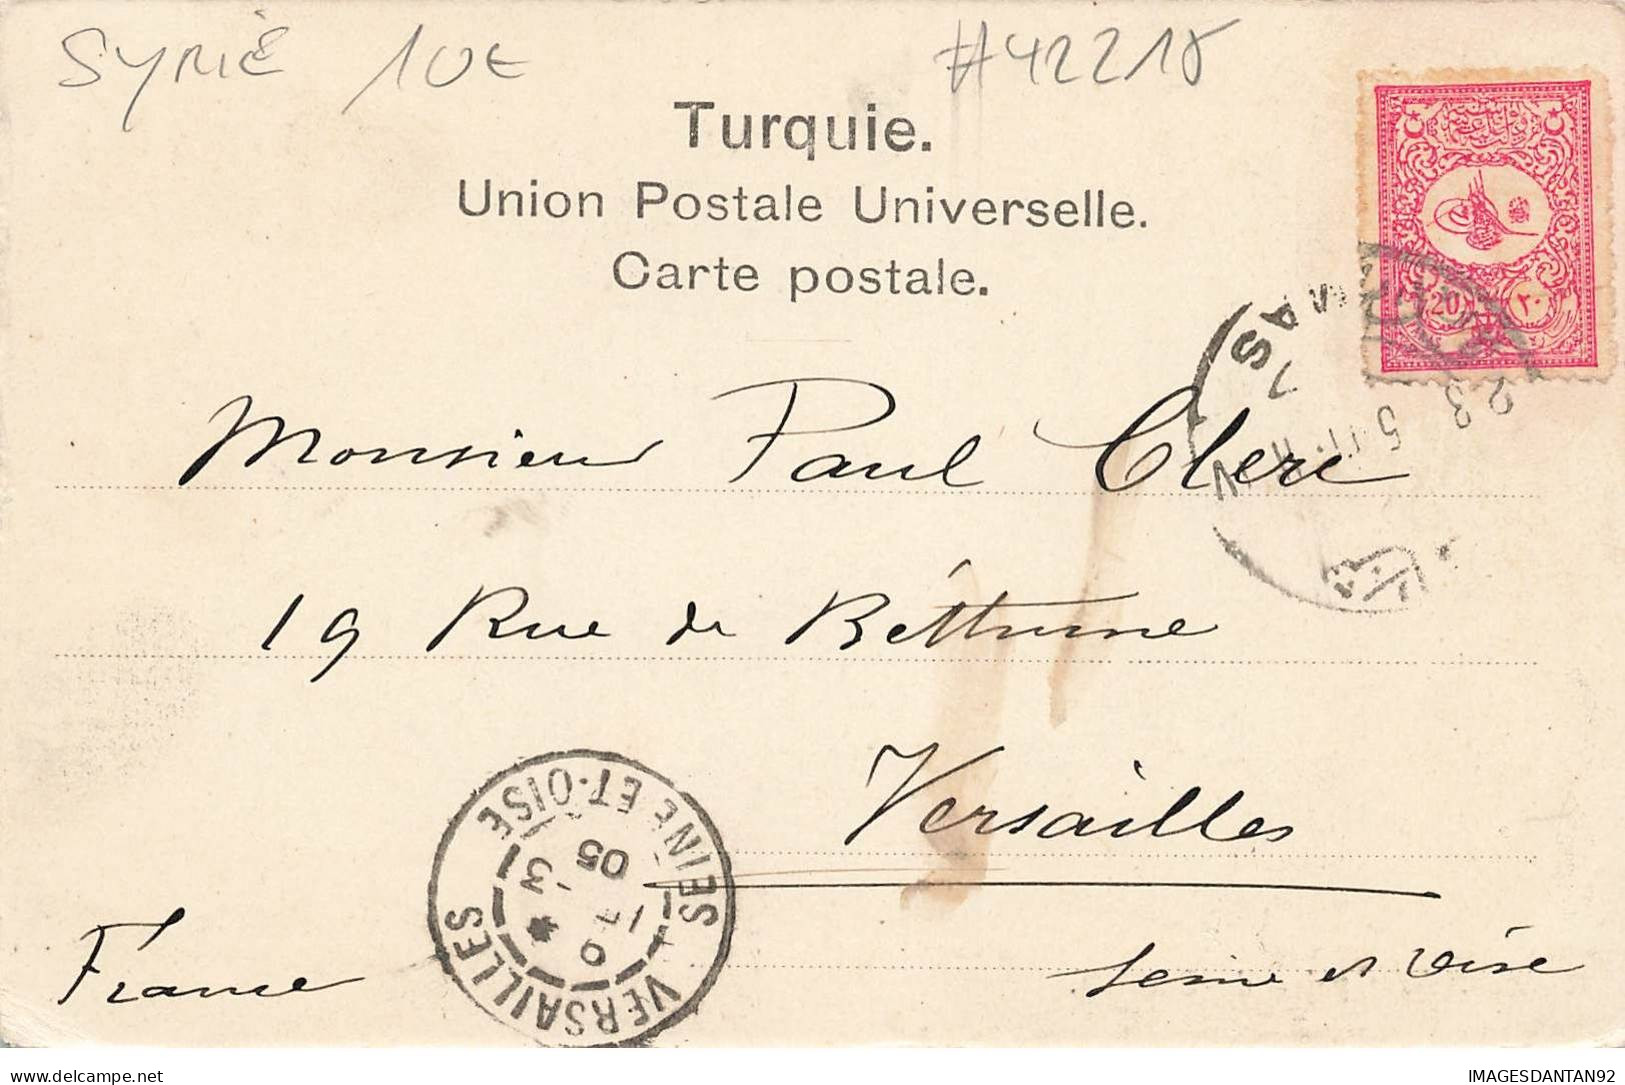 SYRIE 10€ #42218
Turquie.
Union Postale Universelle.
Carte postale.
20 ٢٠
DAMAS
23 5
Monsieur Paul Clerc
19 Rue de Béthune
Versailles
Seine et Oise
France
VERSAILLES SEINE-ET-OISE
3
05
delcampe.net
IMAGESDANTAN92